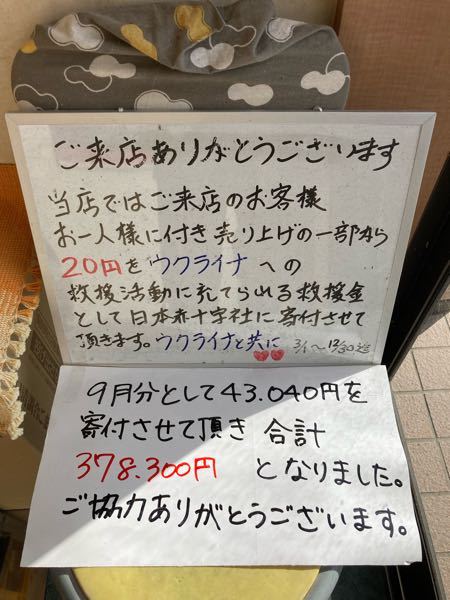 ご来店ありがとうございます
当店ではご来店のお客様
お一人様に付き売り上げの一部から
20円をウクライナへの
救援活動に充てられる救援金
として日本赤十字社に寄付させて
頂きます。ウクライナと共に 3/1〜12/30迄
9月分として43.040円を
寄付させて頂き 合計
378.300円 となりました。
ご協力ありがとうございます。